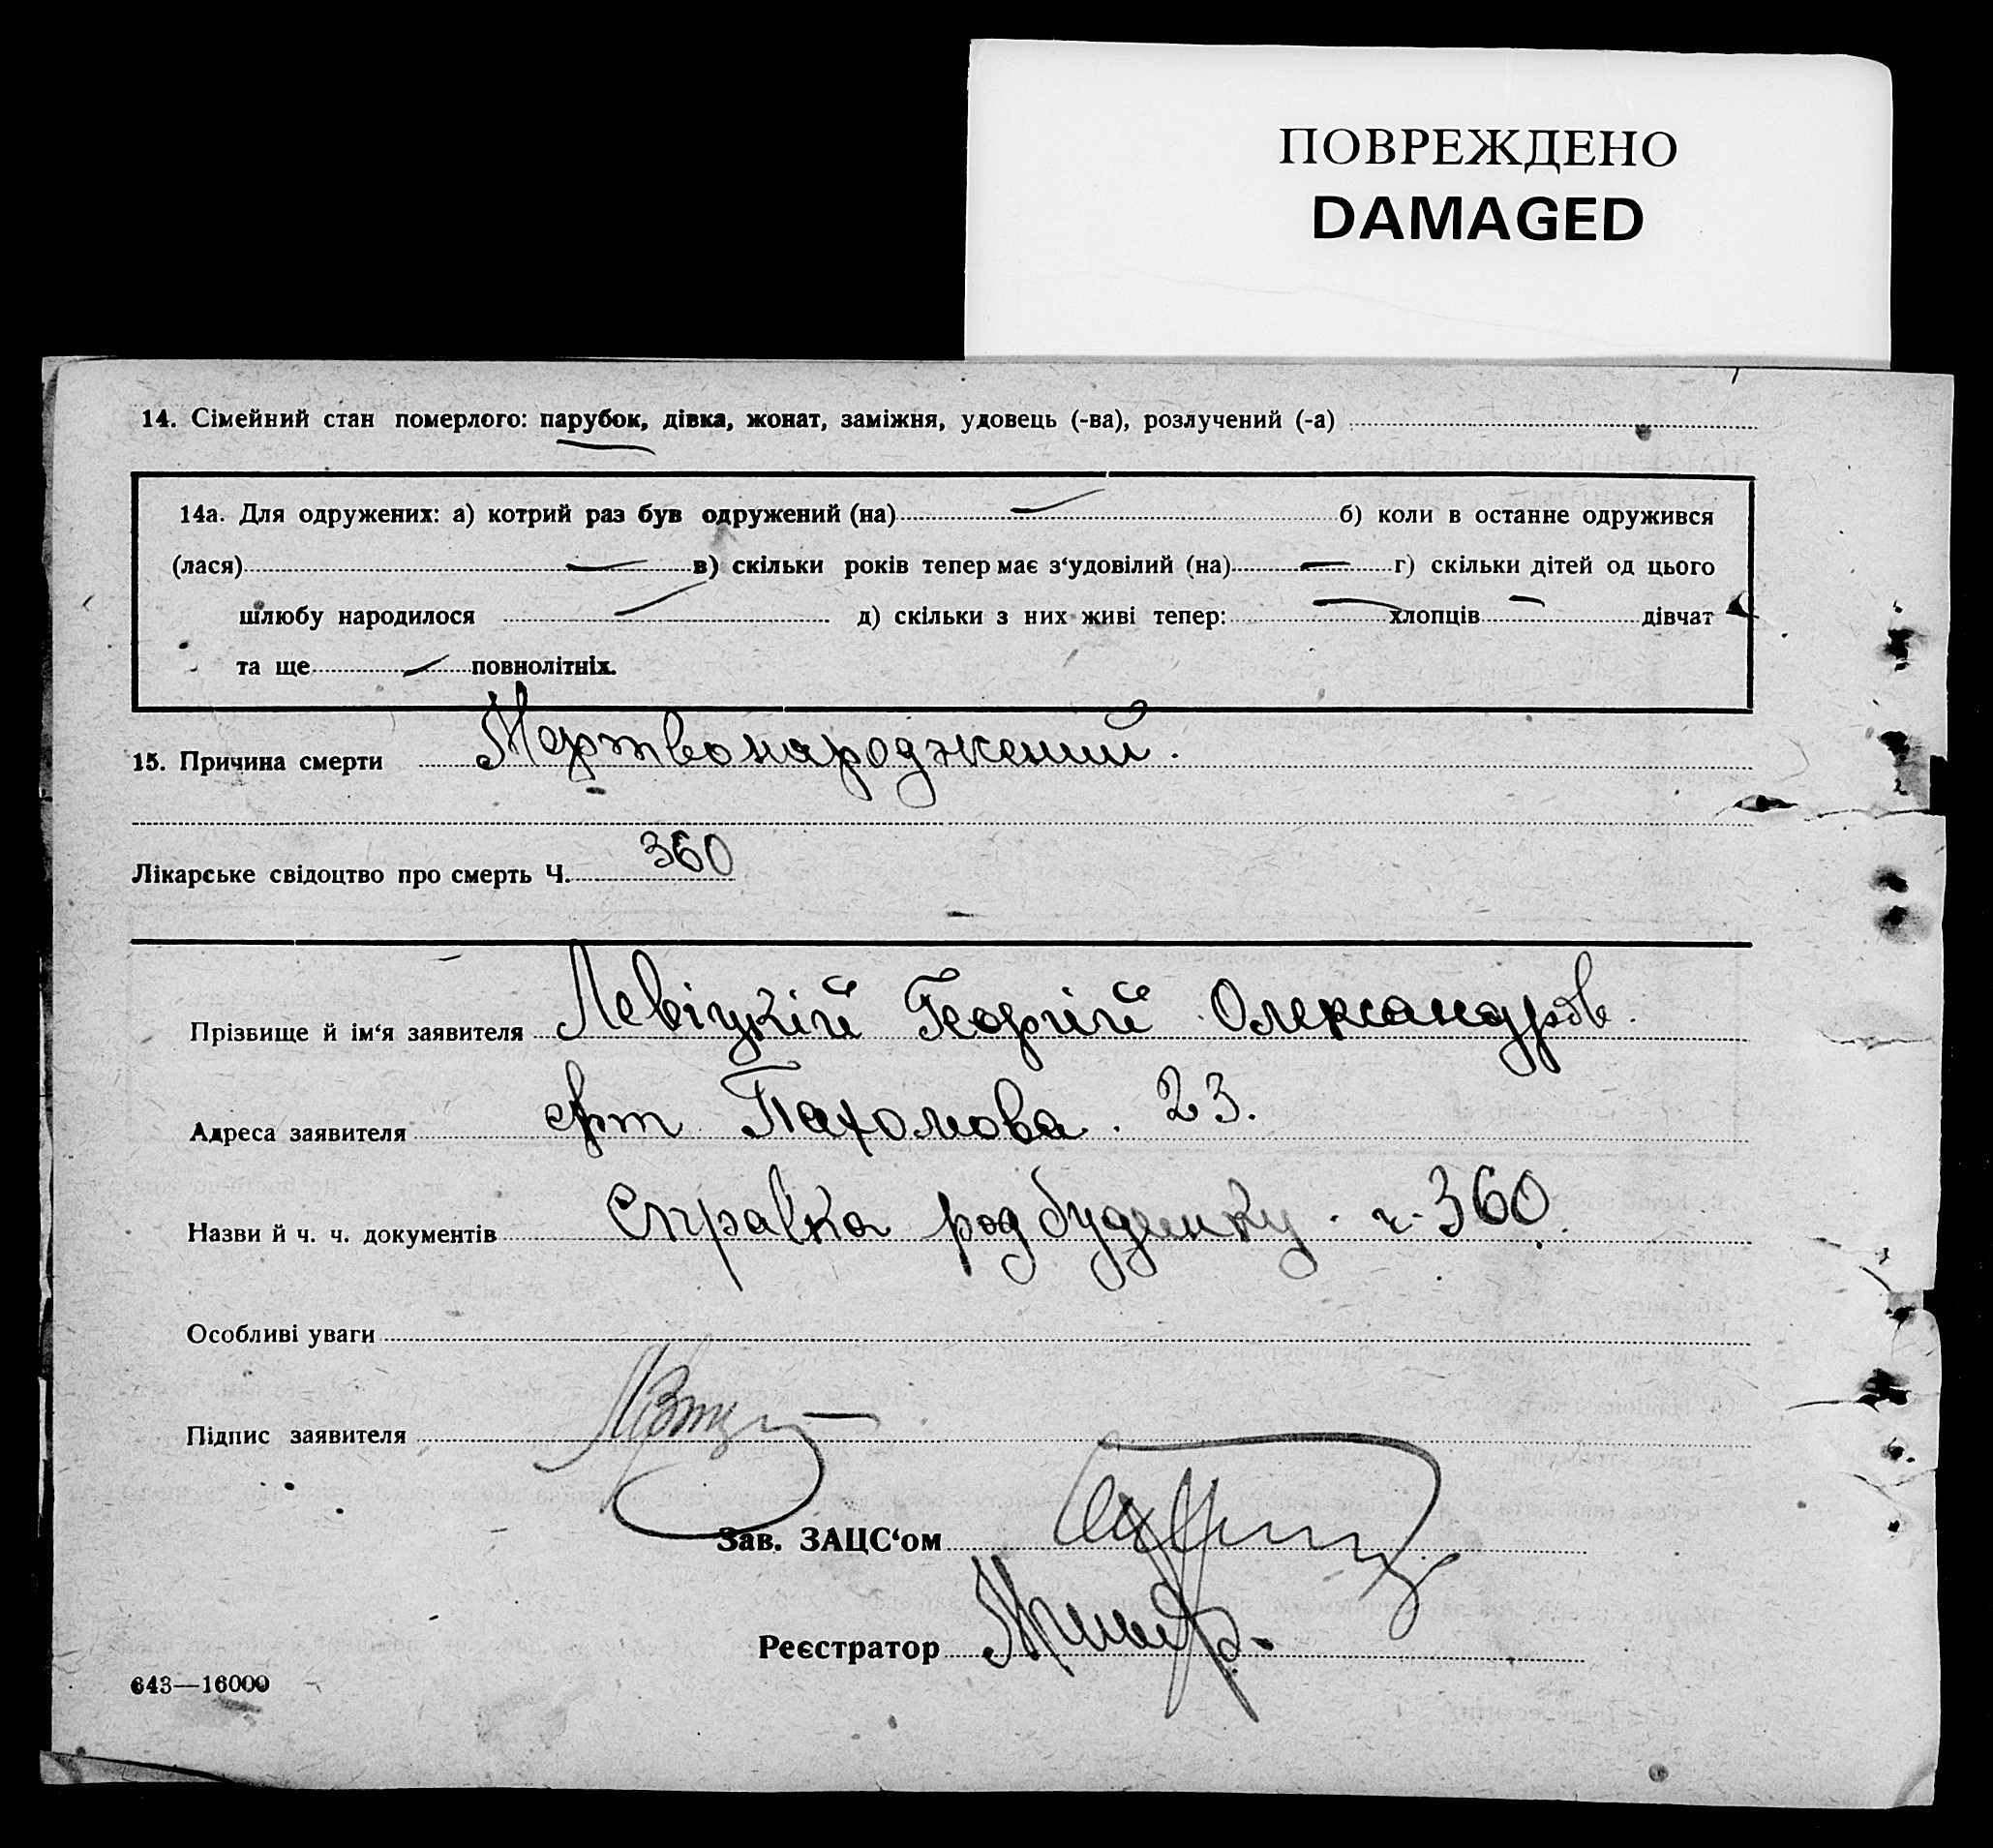 ПОВРЕЖДЕНО
DAMAGED
14. Сімейний стан померлого: парубок, дівка, жонат, заміжня, удовець (-ва), розлучений (-а)
14а. Для одружених: а) котрий раз був одружений (на) — б) коли в останне одружився
(лася) — в) скільки років тепер має з‘удовілий (на) — г) скільки дітей од цього
шлюбу народилося — д) скільки з них живі тепер: — хлопців — дівчат
та ще — повнолітніх.
15. Причина смерти Мертвонароджений.
Лікарське свідоцтво про смерть Ч. 360
Прізвище й ім‘я заявителя Левіцкій Георгій Олександров.
Адреса заявителя Пахомова. 23.
Назви й ч. ч. документів Справка родбуденку. ч. 360.
Особливі уваги
Підпис заявителя
Зав. ЗАЦС‘ом
Реєстратор
643—16000